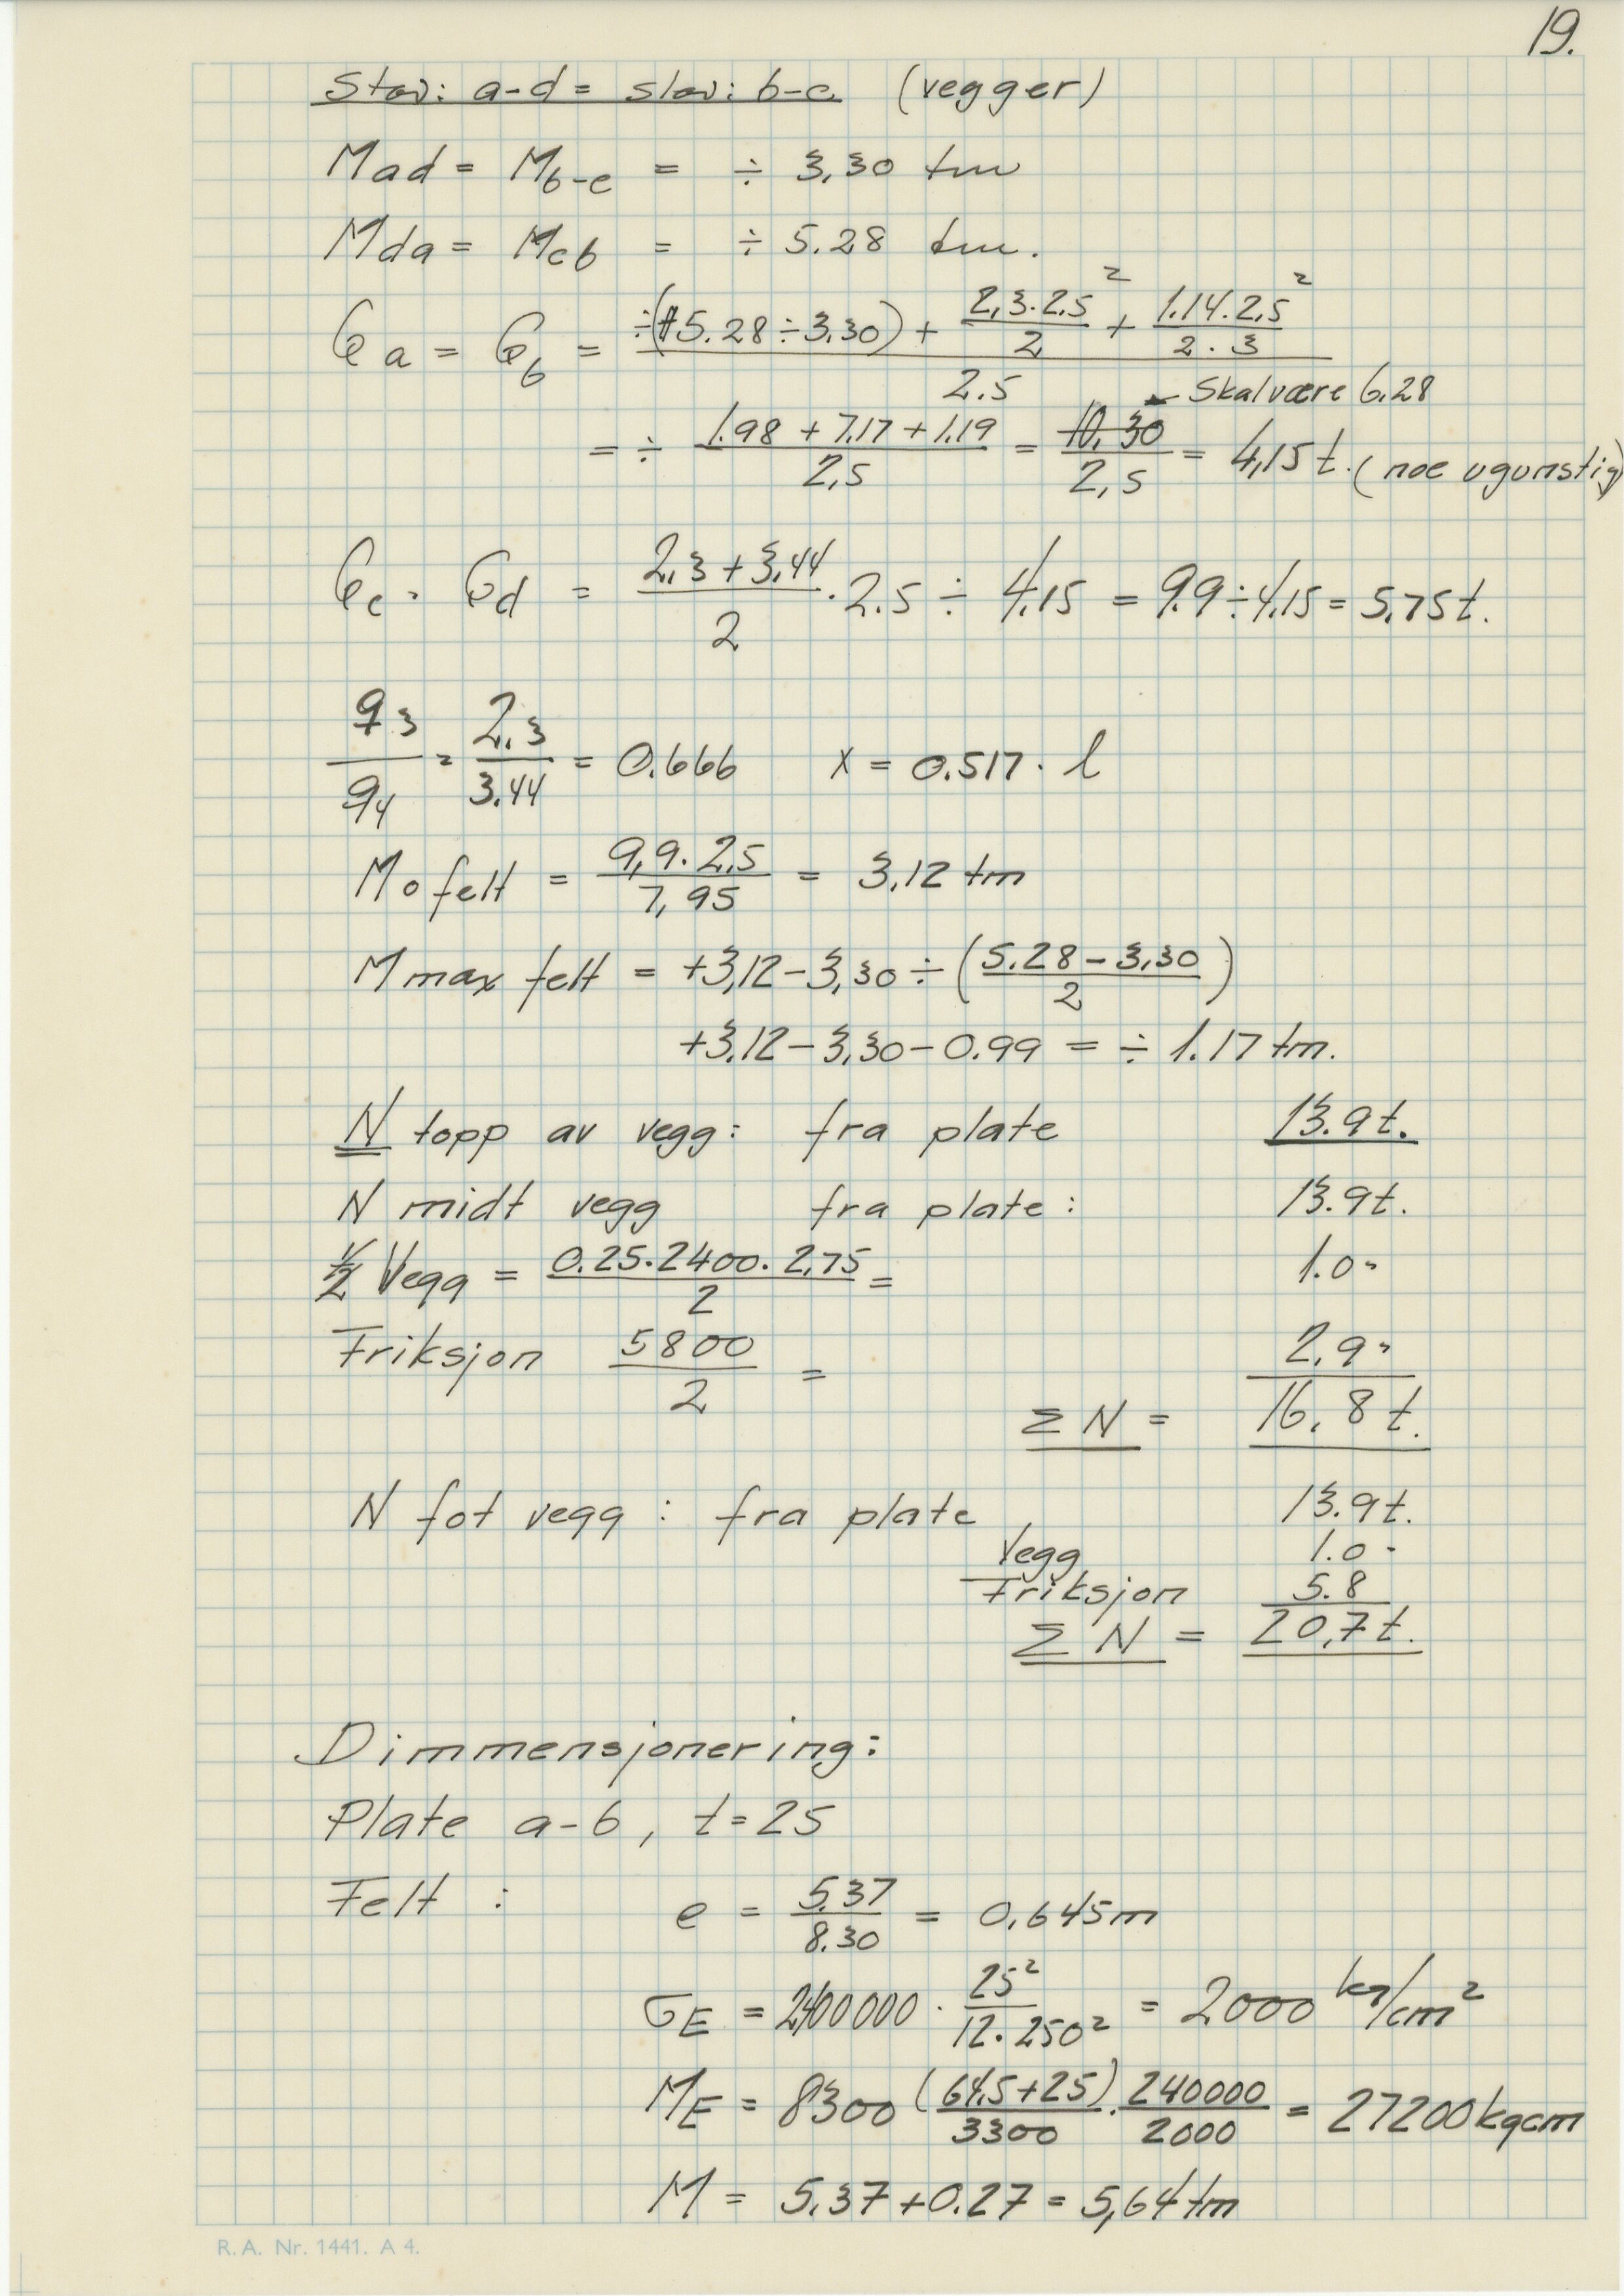 19.
Stav: a-d = stav: b-c (vegger)
Mad = Mb-c = ÷ 3,30 tm
Mda = Mcb = ÷ 5.28 tm.
Qa = Qb = ÷(5.28 ÷ 3.30) + 2,3·2.5²/2 + 1.14·2,5²/2·3 / 2.5
← Skal være 6.28
= ÷ 1.98 + 7.17 + 1.19 / 2,5 = 10,30 / 2,5 = 4,15 t. (noe ugunstig)
Qc = Qd = 2,3 + 3,44 / 2 · 2.5 ÷ 4,15 = 9.9 ÷ 4,15 = 5,75 t.
q3/q4 = 2,3/3.44 = 0.666 x = 0.517 · l
Mo felt = 9,9 · 2,5 / 7,95 = 3,12 tm
M max felt = +3,12 − 3,30 ÷ (5.28 − 3,30 / 2)
+3,12 − 3,30 − 0.99 = ÷ 1.17 tm.
N topp av vegg: fra plate 13.9 t.
N midt vegg fra plate: 13.9 t.
1/2 Vegg = 0.25 · 2400 · 2,75 / 2 = 1.0 "
Friksjon 5800 / 2 = 2,9 "
Σ N = 16,8 t.
N fot vegg : fra plate 13.9 t.
Vegg 1.0 "
Friksjon 5.8
Σ N = 20,7 t.
Dimmensjonering:
Plate a-b, t = 25
Felt : e = 5,37 / 8.30 = 0,645 m
σE = 2400000 · 25² / 12 · 250² = 2000 kg/cm²
ME = 8300 (64,5 + 25) / 3300 · 240000 / 2000 = 27200 kgcm
M = 5,37 + 0.27 = 5,64 tm
R. A. Nr. 1441. A 4.